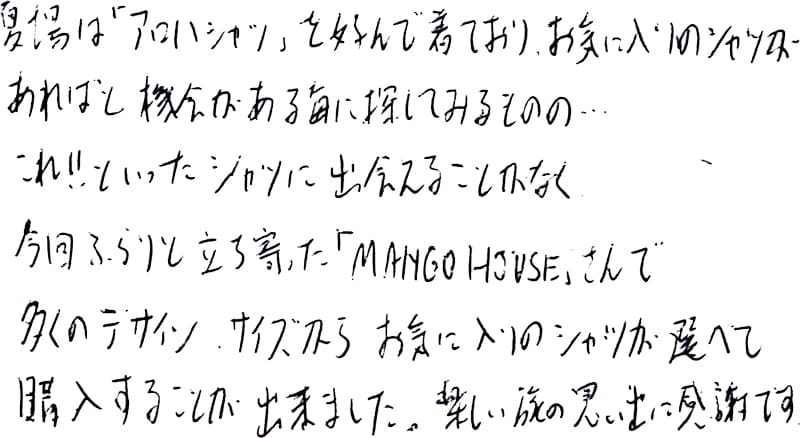 夏場は「アロハシャツ」を好んで着ており、お気に入りのシャツが
あればと機会がある毎に探してみるものの…
これ!!といったシャツに出会えることがなく
今回ふらりと立ち寄った「MANGO HOUSE」さんで
多くのデザイン、サイズからお気に入りのシャツが選べて
購入することが出来ました。楽しい旅の思い出に感謝です